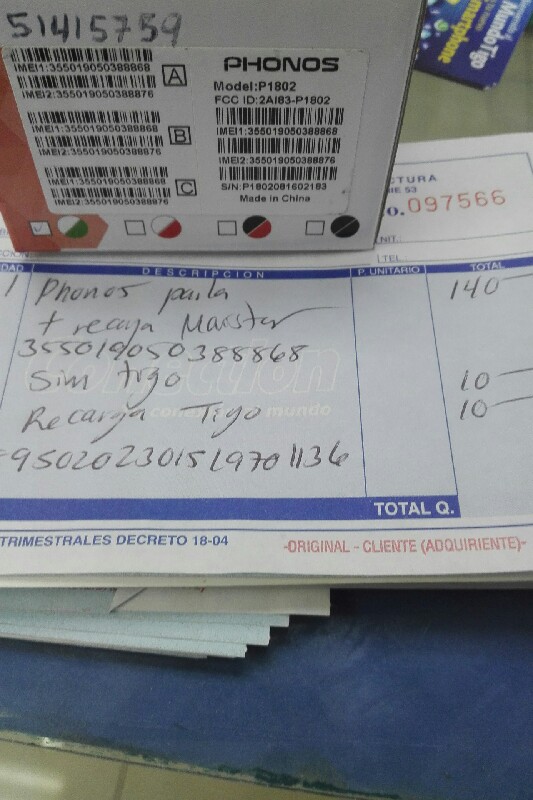 51415759
IMEI1:355019050388868
IMEI2:355019050388876
A
IMEI1:355019050388868
IMEI2:355019050388876
B
IMEI1:355019050388868
IMEI2:355019050388876
C
PHONOS
Model:P1802
FCC ID:2AI83-P1802
IMEI1:355019050388868
IMEI2:355019050388876
S/N:P1802081602183
Made in China
MundoTigo
smartphone
CTURA
IE S3
O. 097566
NIT.
TEL.
DAD DESCRIPCION P. UNITARIO TOTAL
1 Phonos para 140
+ recarga
355019050388868
Sim tigo 10
Recarga Tigo 10
conexion
mundo
950202301519701136
TOTAL Q.
TRIMESTRALES DECRETO 18-04
-ORIGINAL - CLIENTE (ADQUIRIENTE)-